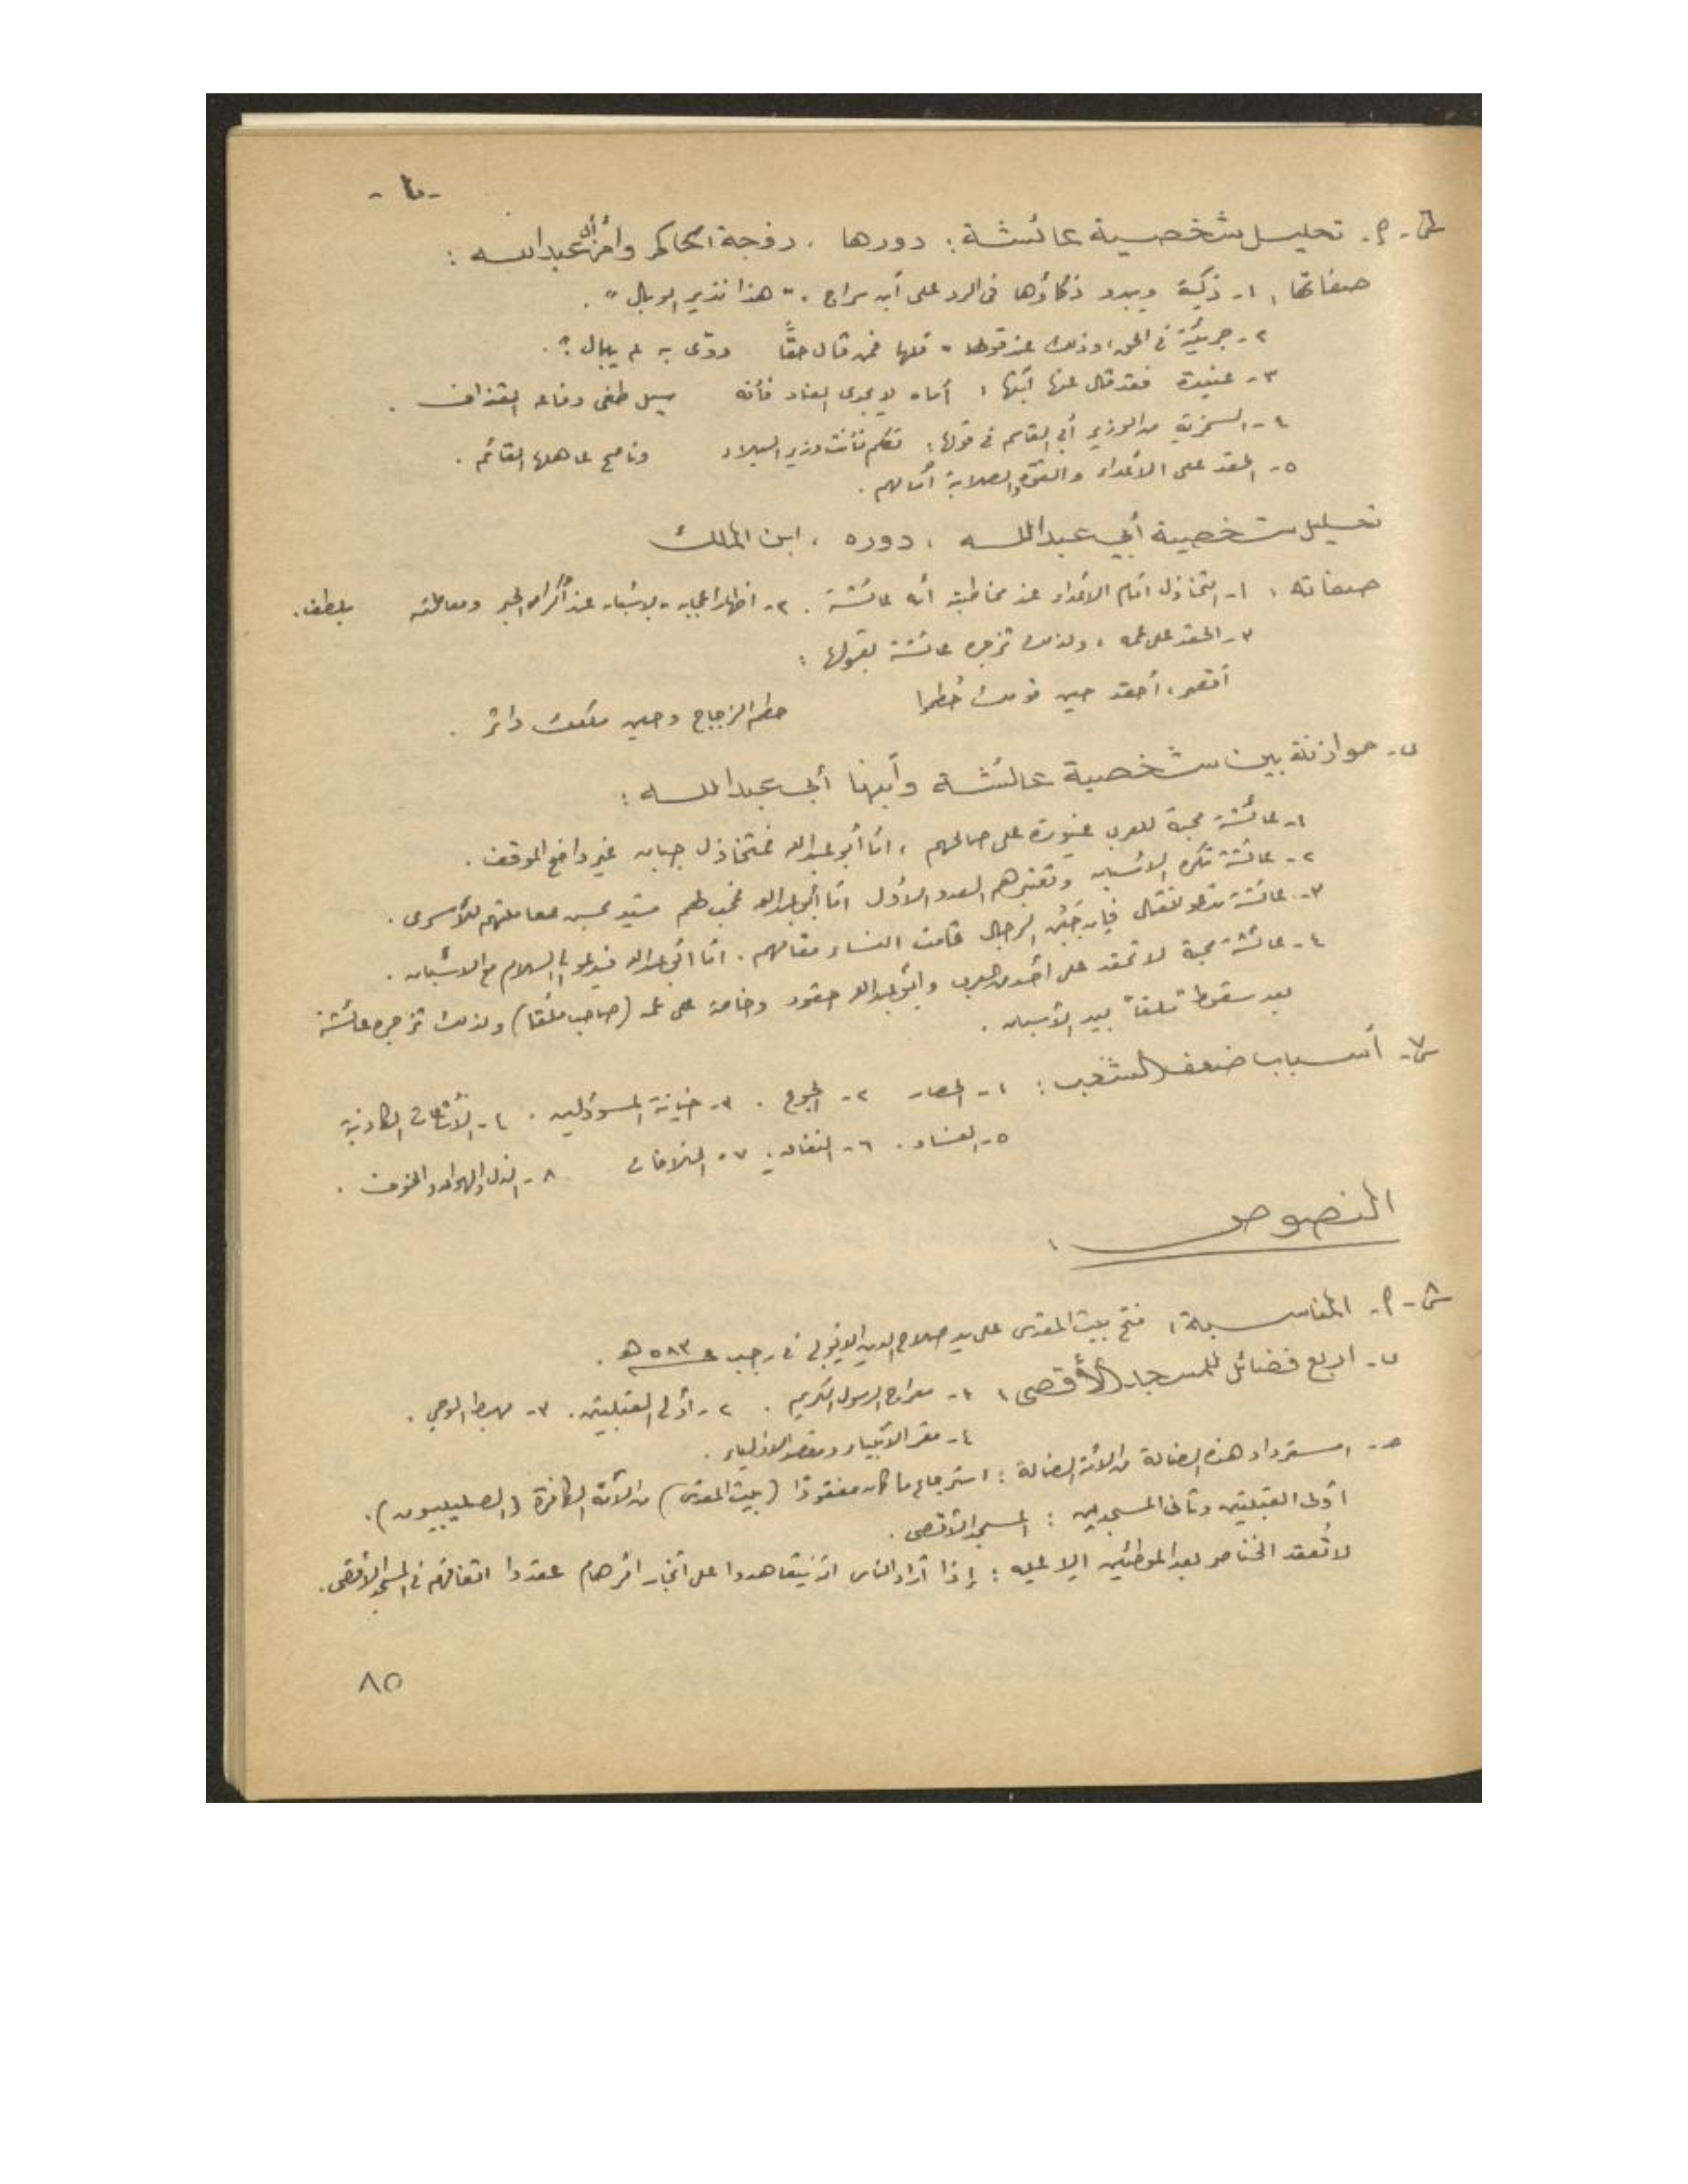 -٤-
س٦-م- تحليل شخصية عائشة: دورها، زوجة الحاكم وأم أبي عبد الله:
صفاتها: ١- ذكية ويبدو ذكاؤها في الرد على ابن سراج: "هذا نذير الوبال".
٢- جريئة في الحق، وذلك عند قولها: قلها فمن قال حقًّا دوّى به لم يبال؟.
٣- عنيدة فقد قال عنها ابنها: أماه لا يجدي العناد فأنه سيل طغى وفاعه القذاف.
٤- السخرية من الوزير أبي القاسم في قولها: تكلم فأنت وزير البلاد وناصح عاهلها القائم.
٥- الحقد على الأعداء والقوة والصلابة أمامهم.
تحليل شخصية أبي عبد الله، دوره، ابن الملك
صفاته: ١- التخاذل أمام الأعداء عند مخاطبة أمه عائشة. ٢- اظهار اعجابه بالاسبان عند اكرامهم ومعاملته بلطف.
٣- الحقد على عمه، ولذلك تزجره عائشة بقولها:
أقصر، أحقد حين قومك حُطموا حطم الزجاج وحين ملكك داثر.
ب- موازنة بين شخصية عائشة وابنها أبي عبد الله:
١- عائشة محبة للعرب غيورة على صالحهم، أمّا أبو عبد الله فمتخاذل جبان غير واضح الموقف.
٢- عائشة تكره الاسبان وتعتبرهم العدو الأول أمّا أبو عبد الله فمحب لهم مشيد بحسن معاملتهم للأسرى.
٣- عائشة تدعو للقتال فإن جَبُن الرجال قامت النساء مقامهم. أمّا أبو عبد الله فيدعو إلى السلام مع الاسبان.
٤- عائشة محبة لا تحقد على أحد من العرب وأبو عبد الله حقود وخاصة على عمه (صاحب ملقا) ولذلك تزجره عائشة
بعد سقوط "ملقا" بيد الأسبان.
س٧- أسباب ضعف الشعب: ١- الحصار ٢- الجوع. ٣- خيانة المسؤولين. ٤- الأشاعات الكاذبة
٥- الفساد. ٦- النفاق. ٧- الخلافات ٨- الذل والهوان والخوف.
النصوص:
س٨-م- المناسبة: فتح بيت المقدس على يد صلاح الدين الايوبي في رجب ٥٨٣ هـ.
ب- اربع فضائل للمسجد الأقصى: ١- معراج الرسول الكريم. ٢- أولى القبلتين. ٣- مهبط الوحي.
٤- مقر الأنبياء ومقصد الاولياء.
حـ- استرداد هذه الضالة من الأمة الضالة: استرجاع ما كان مفقودًا (بيت المقدس) من الأمة الكافرة (الصليبيون).
أولى القبلتين وثاني المسجدين: المسجد الأقصى.
لا تُعقد الخناصر بعد الموطنين إلا عليه: إذا أراد الناس أن يتعاهدوا على أنجاز أمر هام عقدوا اتفاقهم في المسجد الأقصى.
٨٥